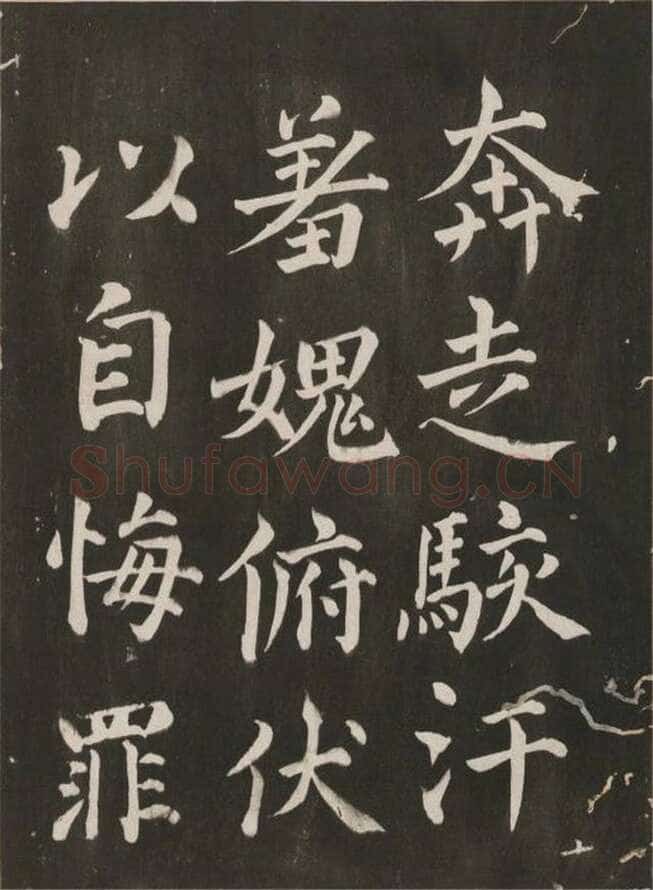 奔走駭汗
羞媿俯伏
以自悔罪
Shufawang.CN